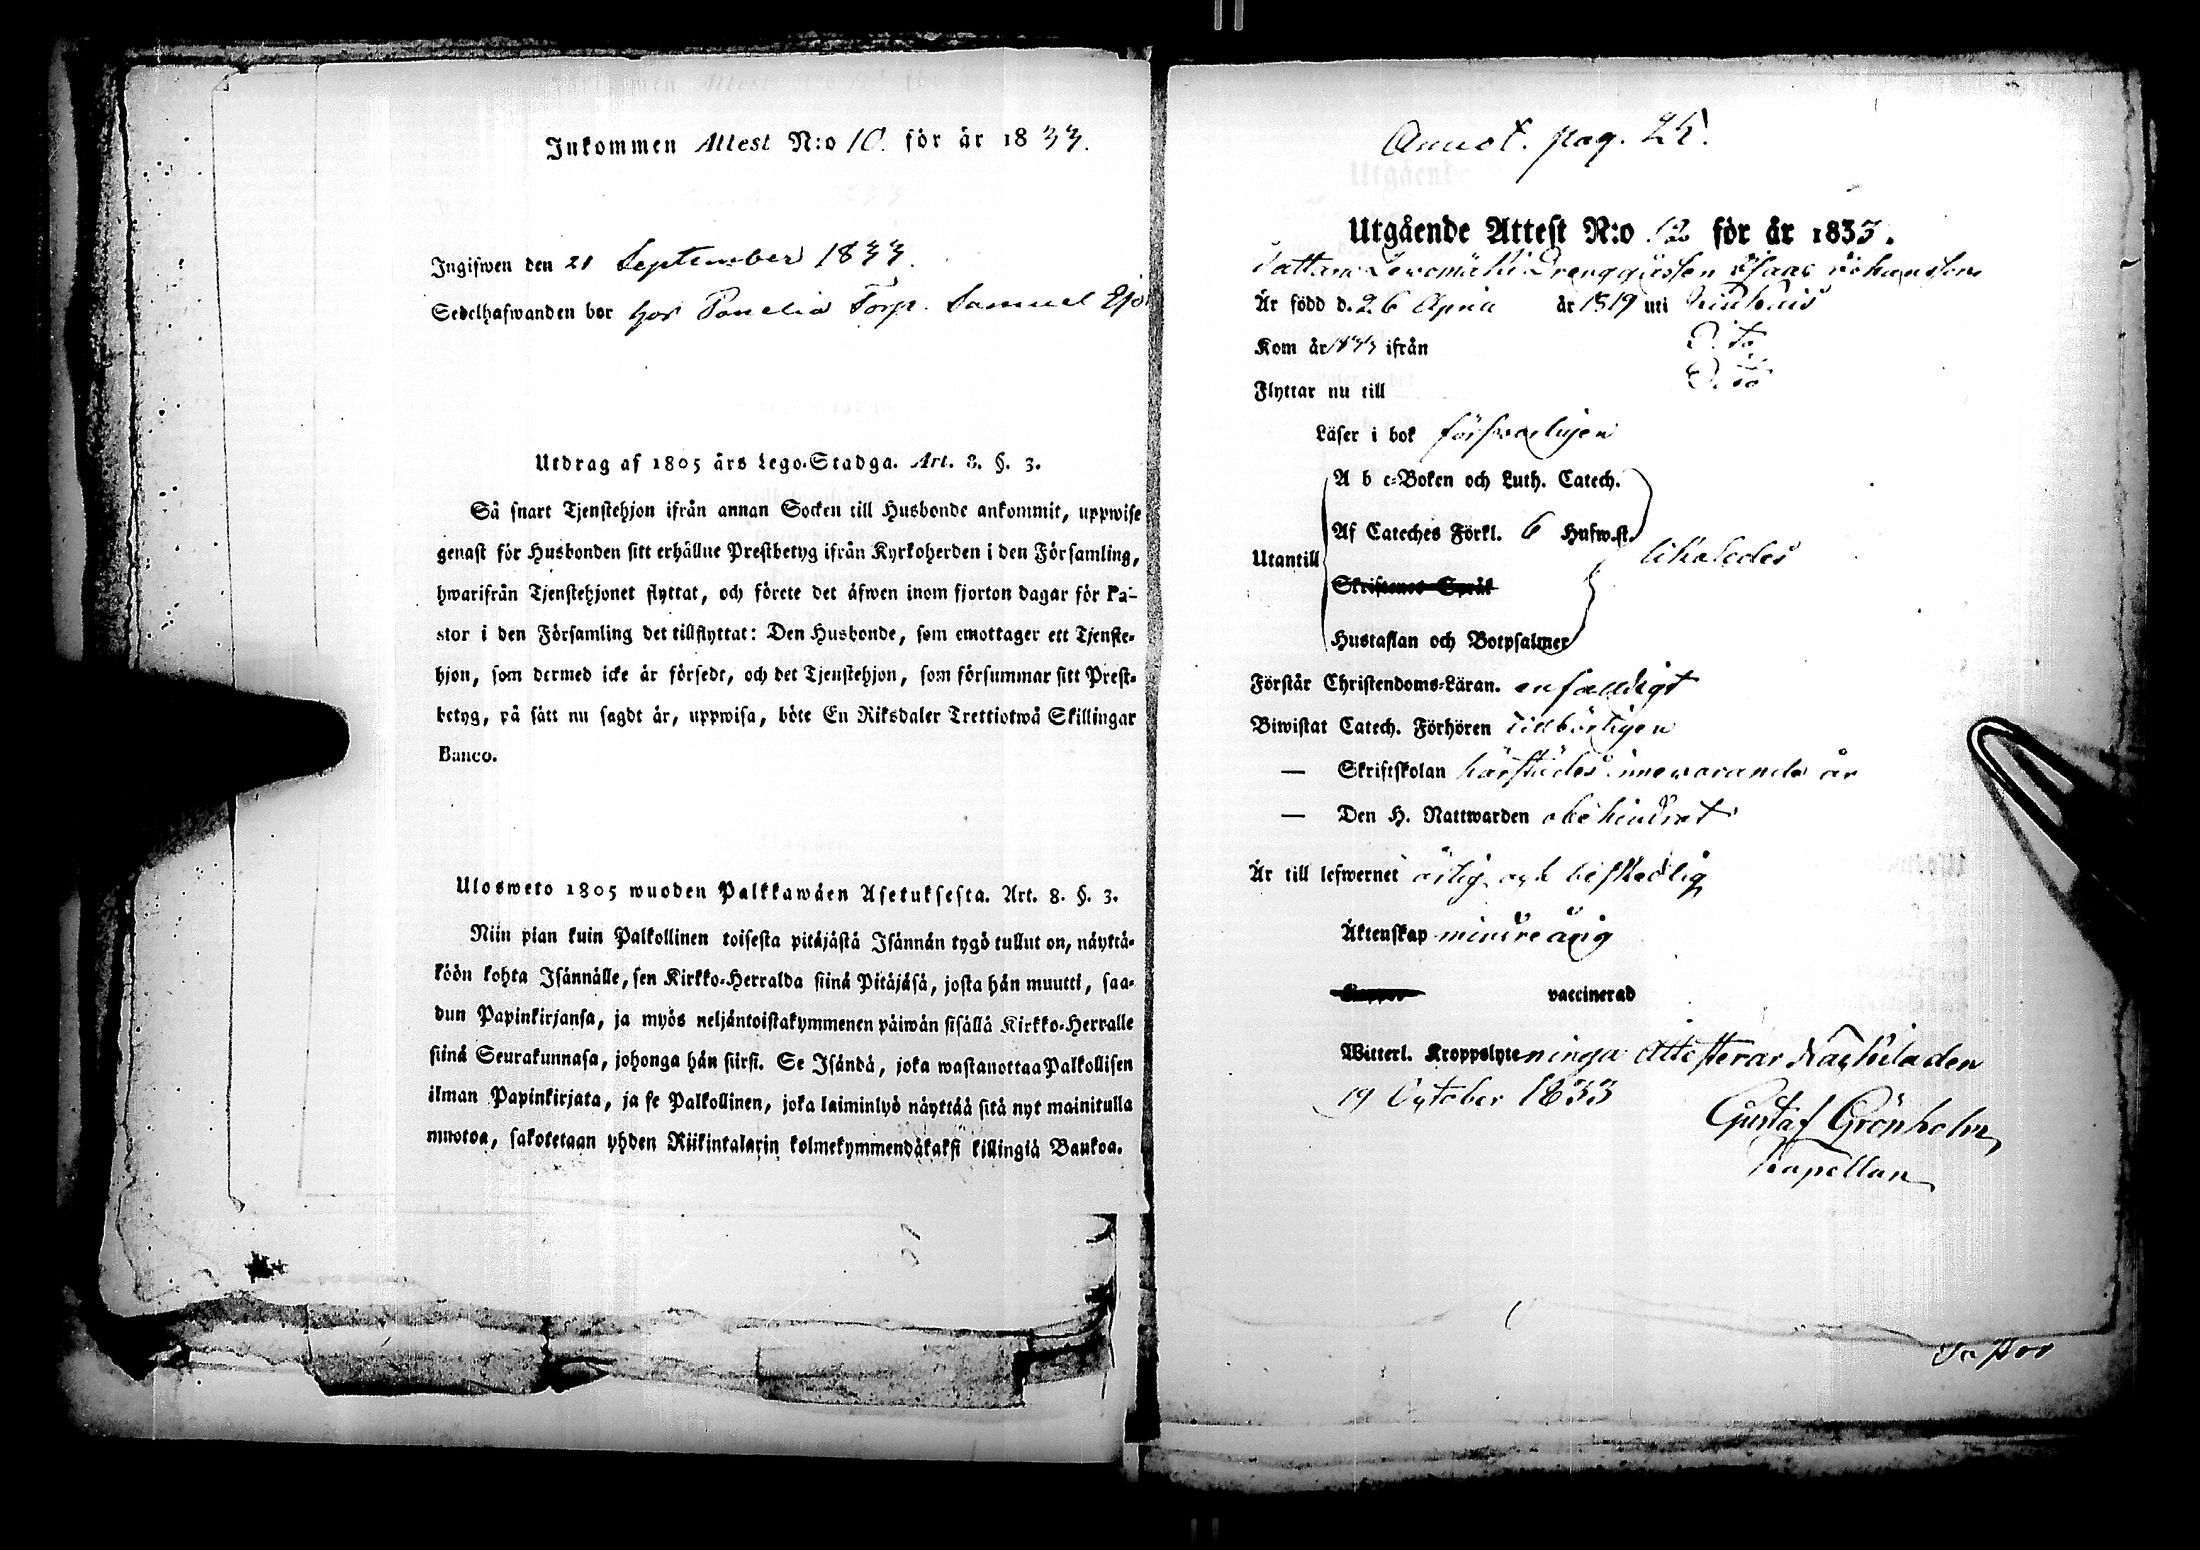 Inkommen Attest N:o 10. för år 1833.
Ingifwen den 21 September 1833.
Sedelhafwanden bor hos Panelia Torp. Samuel
Utdrag af 1805 års Lego-Stadga. Art. 8. §. 3.
Så snart Tjenstehjon ifrån annan Socken till Husbonde ankommit, uppwise
genast för Husbonden sitt erhållne Prestbetyg ifrån Kyrkoherden i den Församling,
hwarifrån Tjenstehjonet flyttat, och förete det äfwen inom fjorton dagar för Pa-
stor i den Församling det tillflyttat: Den Husbonde, som emottager ett Tjenste-
hjon, som dermed icke är försedt, och det Tjenstehjon, som försummar sitt Prest-
betyg, på sätt nu sagdt är, uppwisa, böte En Riksdaler Trettiotwå Skillingar
Banco.
Ulosweto 1805 wuoden Palkkawäen Asetuksesta. Art. 8. §. 3.
Niin pian kuin Palkollinen toisesta pitäjästä Isännän tygö tullut on, näyttä-
köön kohta Isännälle, sen Kirkko-Herralda siinä Pitäjäsä, josta hän muutti, saa-
dun Papinkirjansa, ja myös neljäntoistakymmenen päiwän sisällä Kirkko-Herralle
siinä Seurakunnasa, johonga hän siirsi. Se Isändä, joka wastanottaa Palkollisen
ilman Papinkirjata, ja se Palkollinen, joka laiminlyö näyttää sitä nyt mainitulla
muotoa, sakotetaan yhden Riikintalarin kolmekymmendäkaksi killingiä Bankoa.
Annot. pag. 25.
Utgående Attest N:o 12 för år 1833.
Drenggåssen Isaac Johansson
Är född d. 26 April år 1819 uti
Kom år 1833 ifrån Dito
Flyttar nu till Dito
Läser i bok försvarligen
A b c-Boken och Luth. Catech.
Af Cateches Förkl. 6 Hufwst.
Utantill likaledes
Skriftenes Språk
Hustaflan och Botpsalmer
Förstår Christendoms-Läran. enfaldigt
Biwistat Catech. Förhören tillbörligen
— Skriftskolan härstädes innevarande år
— Den H. Nattwarden obehindrat
Är till lefwernet ärlig och beskedlig
Äktenskap minderårig
vaccinerad
Witterl. Kroppslyteninga Attesterar Nackiladen
19 October 1833
Gustaf Grönholm
Kapellan